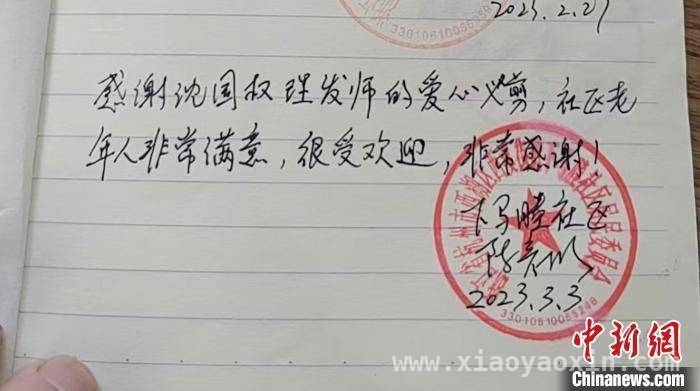 2023.2.27
感谢沈国权理发师的爱心义剪,社区老
年人非常满意,很受欢迎,非常感谢!
下马塍社区
2023.3.3
33010610065288
www.xiaoyaoxin.com
中新网
Chinanews.com